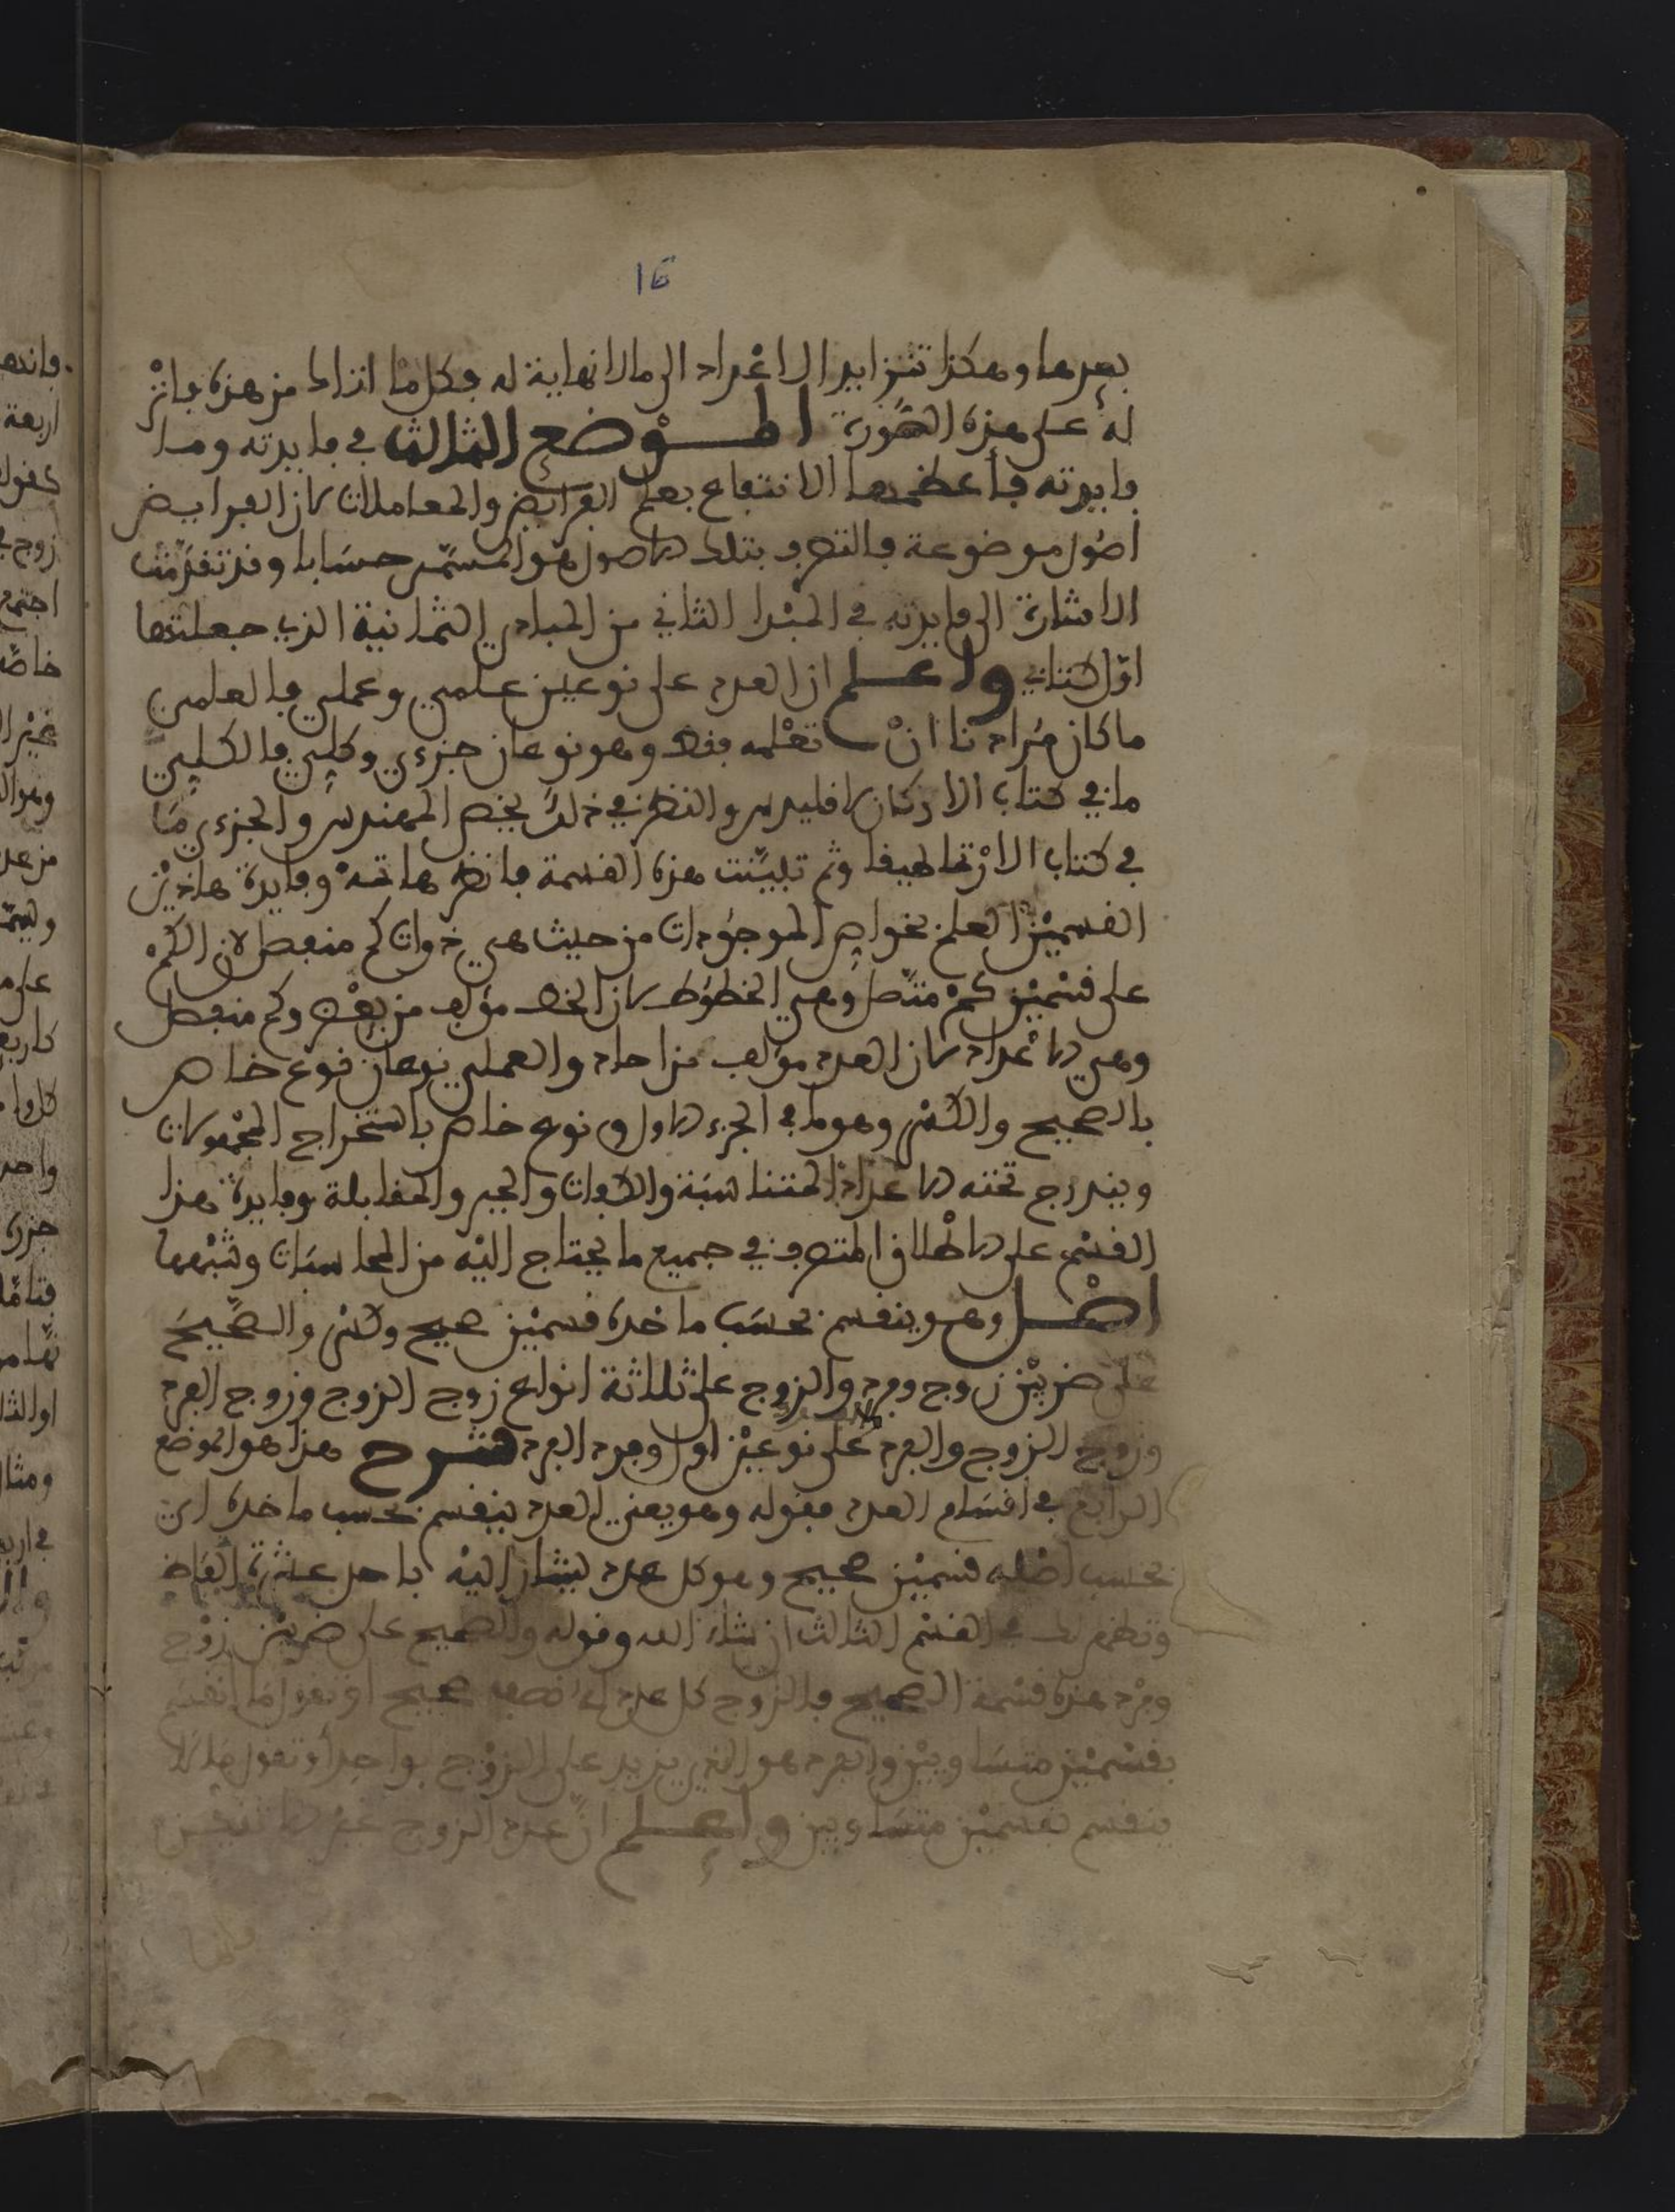 16
بعدها وهكذا تتزايد الاعداد الى مالا نهاية له فكل ما اتزاد من هذه فانز
له على هذه الصورة الموضع الثالث في فايدته وما
فايدته فأعظمها الانتفاع بعلم الفرائض والمعاملات لان الفرايض
اصول موضوعة فالتصرف بتلك الاصول هو المسمى حسابا وقد تقدمت
الاشارة الى فايدته في المبدا الثاني من المبادي الثمانية الذي جعلتها
اول كتابي واعلم ان العدد على نوعين علمي وعملي فالعلمي
ما كان مرادنا ان تعلمه فقط وهو نوعان جزءي وكلي فالكلي
ما في كتاب الاركان لاقليدس والنظر في ذلك يخص المهندس والجزءي ما
في كتاب الارتماطيقا وثم تبينت هذه القسمة فانظرها تمه وفايدة هاذين
القسمين العلم بخواص الموجودات من حيث هي ذوات كم منفصل لان الكم
على قسمين كم متصل وهي الخطوط لان الخط مؤلف من بعض وكم منفصل
وهي الاعداد لان العدد مؤلف من احاد والعملي نوعان نوع خاص
بالصحيح والكسر وهو ما في الجزء الاول ونوع خاص باستخراج المجهولات
ويندرج تحته الاعداد المتناسبة والكفات والجبر والمقابلة وفايدة هذا
القسم على الاطلاق التصرف في جميع ما يحتاج اليه من المحاسبات وشبهها
اصل وهو ينقسم بحسب ماخذه قسمين صحيح وكسر والصحيح
على ضربين زوج وفرد والزوج على ثلاثة انواع زوج الزوج وزوج الفرد
وزوج الزوج والفرد والفرد على نوعين اول وفرد الفرد شرح هذا هو الموضع
الرابع في اقسام العدد فقوله وهو يعني العدد ينقسم بحسب ماخذه اي
بحسب اصله قسمين صحيح وهو كل عدد يشار اليه باحد عشرة الفاظ
وتظهر لك في القسم الثالث ان شاء الله وقوله والصحيح على ضربين زوج
وفرد هذه قسمة الصحيح فالزوج كل عدد له نصف صحيح او تقول ما انقسم
بقسمين متساويين والفرد هو الذي يزيد على الزوج بواحد أو تقول ما لا
ينقسم بقسمين متساويين واعلم ان عدد الزوج غير